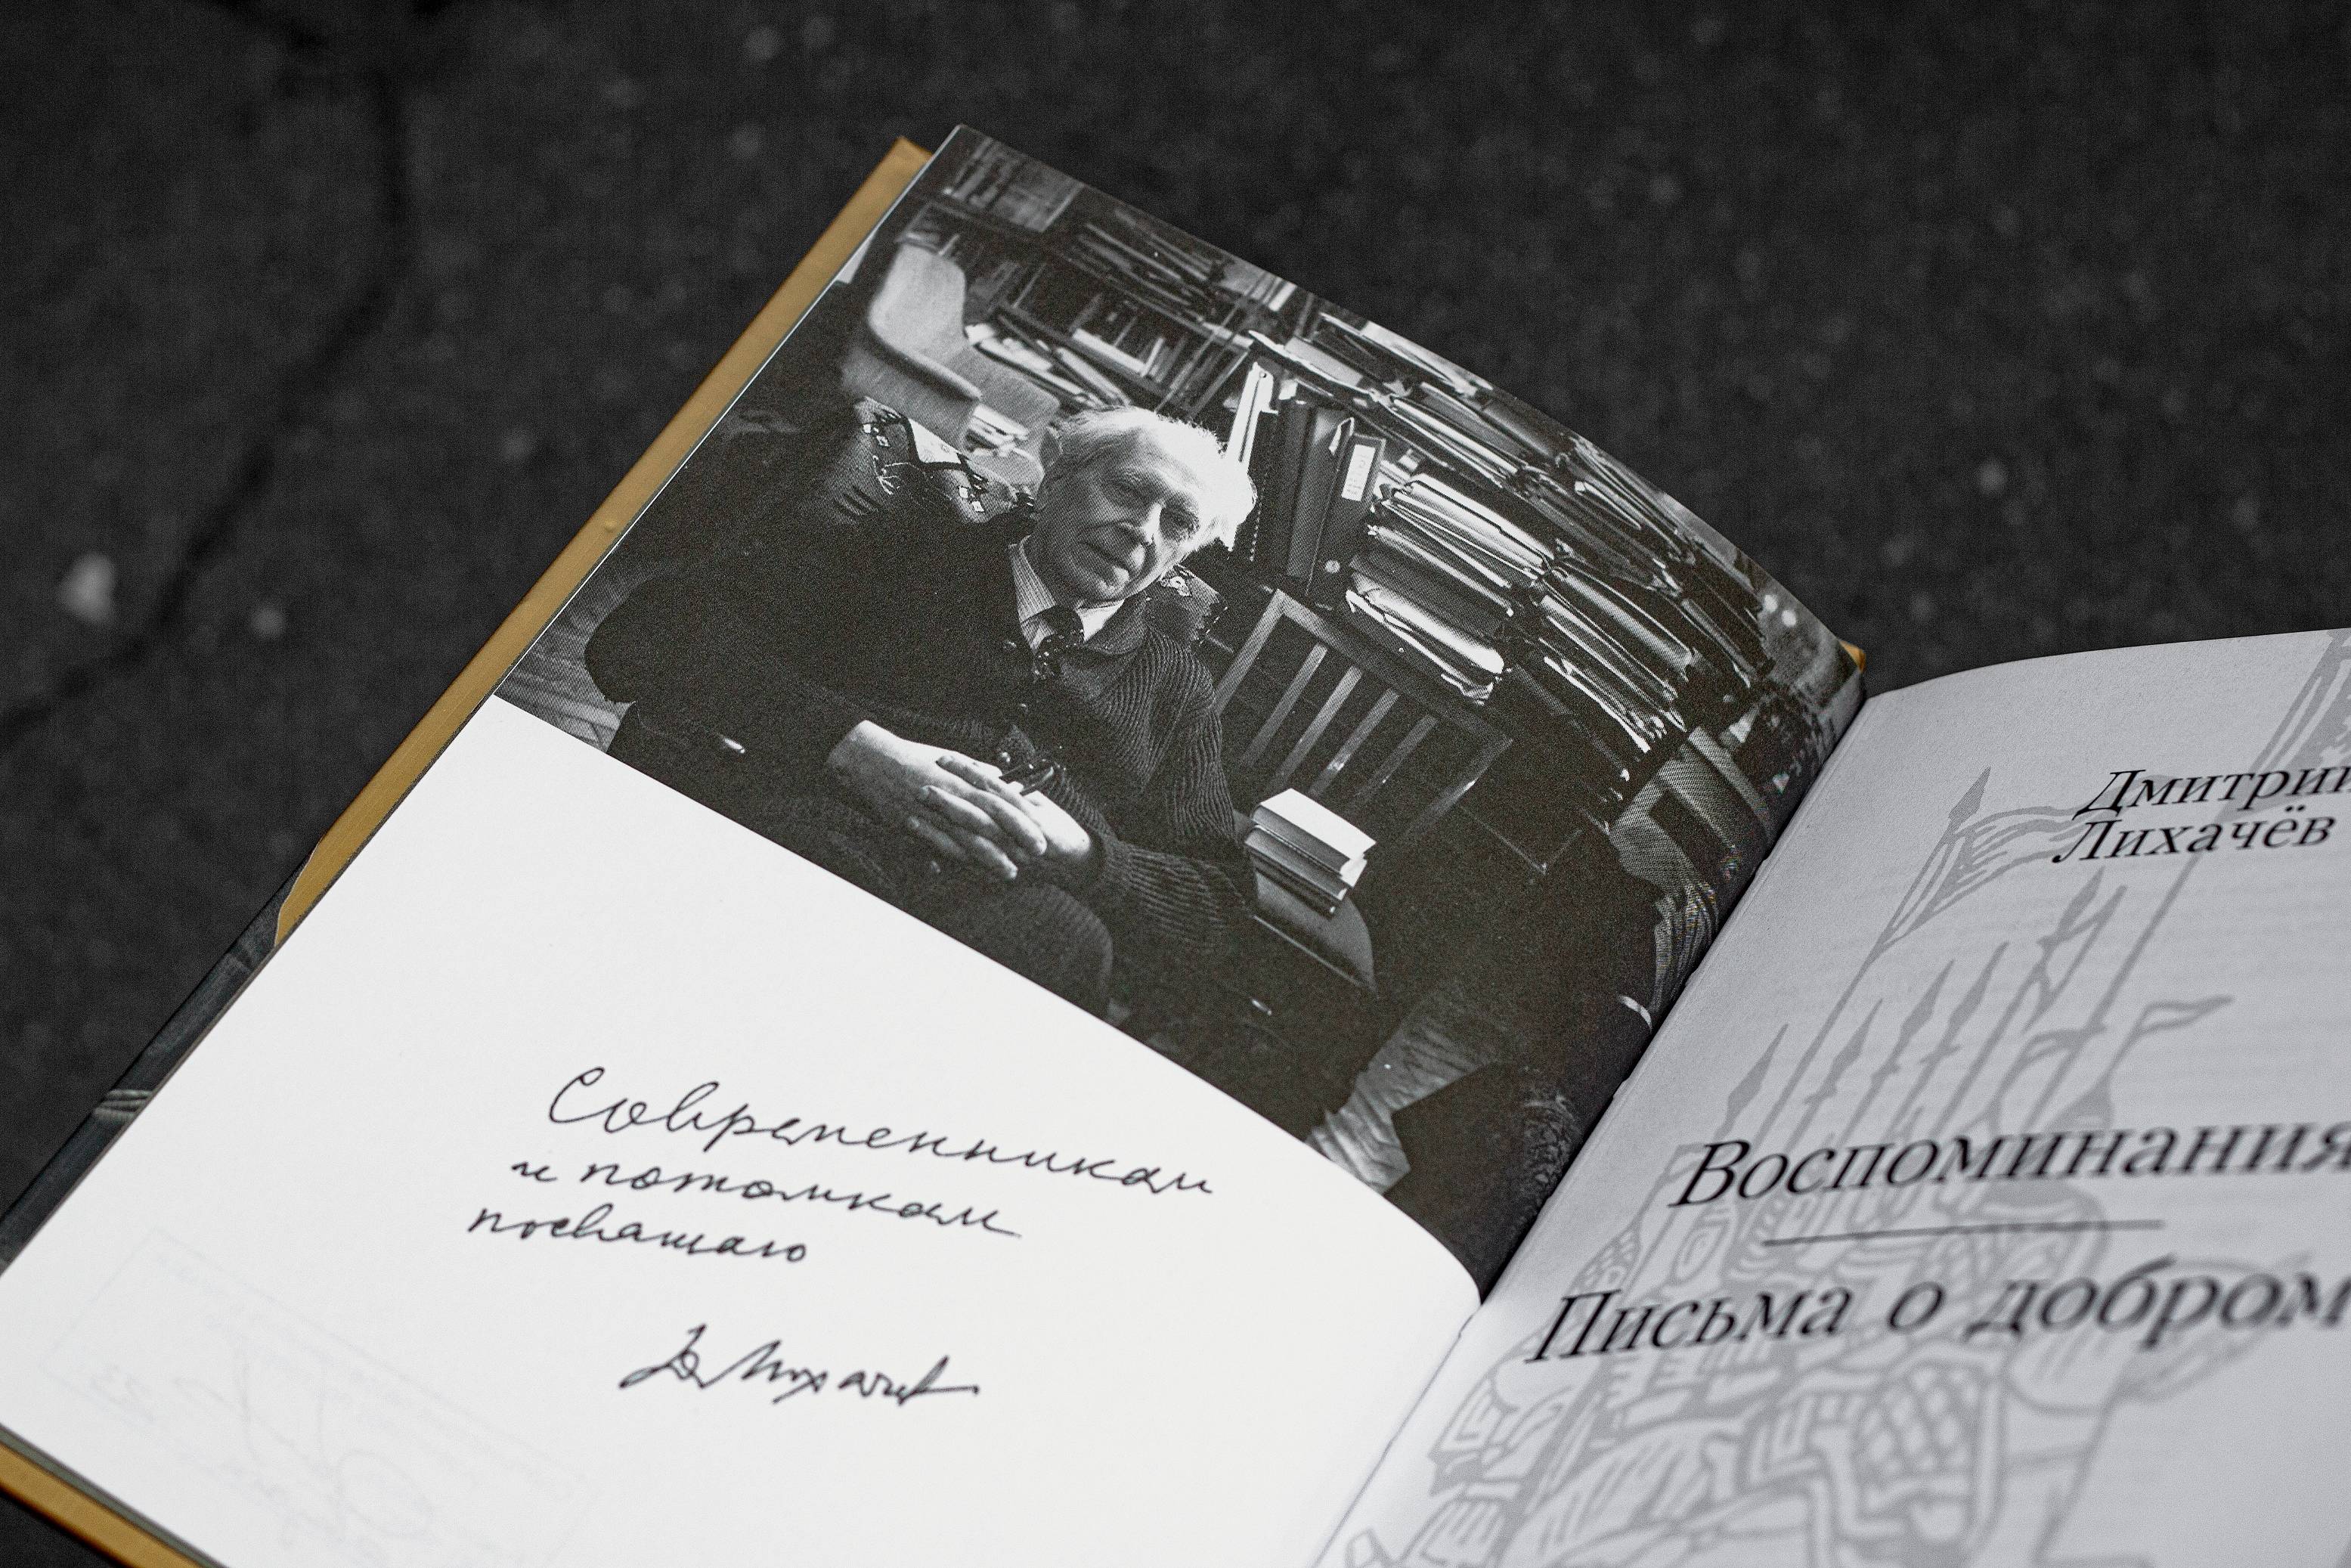 Современникам
и потомкам
посвящаю
Д. Лихачев
Дмитрий
Лихачёв
Воспоминания
Письма о добром